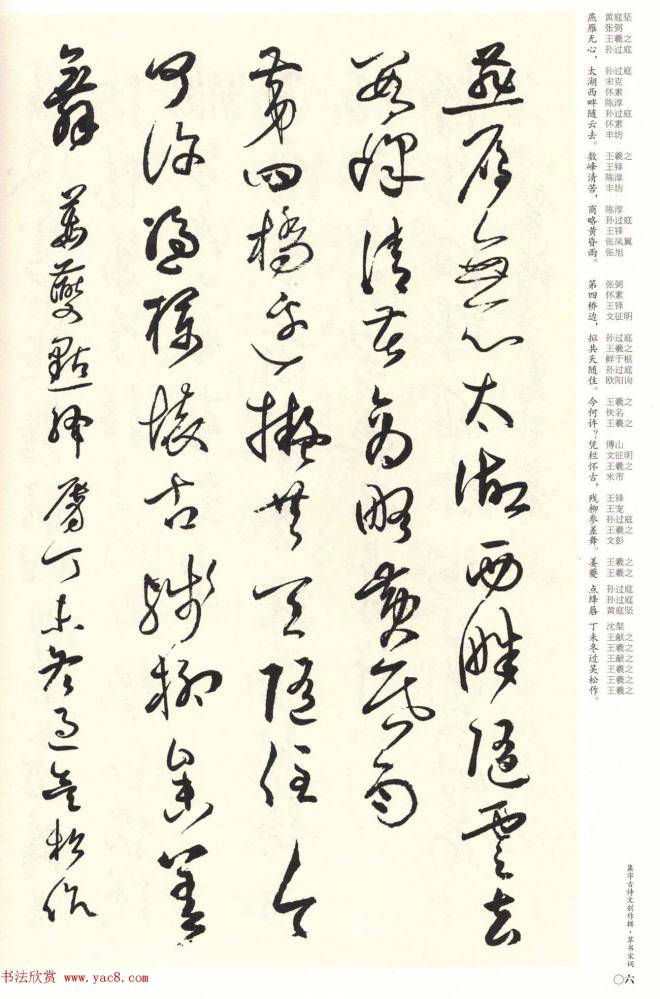 黄庭坚 张弼 王羲之 孙过庭 孙过庭 宋克 怀素 陈淳 孙过庭 怀素 丰坊 王羲之 王铎 陈淳 丰坊 陈淳 孙过庭 王铎 张凤翼 张旭 张弼 怀素 王铎 文征明 孙过庭 王羲之 鲜于枢 孙过庭 欧阳询 王羲之 佚名 王羲之 傅山 文征明 王羲之 米芾 王铎 王宠 孙过庭 王羲之 文彭 王羲之 王羲之 孙过庭 孙过庭 黄庭坚 沈粲 王献之 王羲之 王献之 王羲之 王羲之 王羲之
燕雁无心，太湖西畔随云去。数峰清苦，商略黄昏雨。 第四桥边，拟共天随住。今何许？凭栏怀古，残柳参差舞。 姜夔 点绛唇 丁未冬过吴松作。
集字古诗文创作辑·草书宋词
〇六
燕雁無心太湖西畔隨雲去
數峰清苦商略黃昏雨
第四橋邊擬共天隨住今
何許憑欄懷古殘柳參差
舞 姜夔點絳脣丁未冬過吳松作
书法欣赏 www.yac8.com